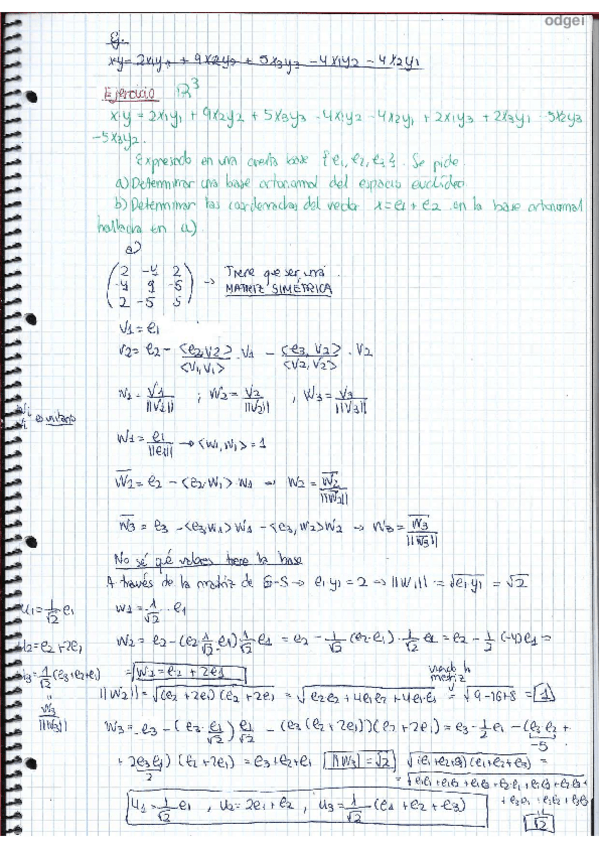 odgei
Ej.
xy = 2x1y1 + 9x2y2 + 5x3y3 - 4x1y2 - 4x2y1
Ejercicio R³
x·y = 2x1y1 + 9x2y2 + 5x3y3 - 4x1y2 - 4x2y1 + 2x1y3 + 2x3y1 - 5x2y3
- 5x3y2.
Expresado en una cierta base {e1, e2, e3}. Se pide
a) Determinar una base ortonormal del espacio euclídeo
b) Determinar las coordenadas del vector x = e1 + e2 en la base ortonormal
hallada en a)
a)
(2 -4 2
-4 9 -5
2 -5 5) → Tiene que ser una
MATRIZ SIMÉTRICA
V1 = e1
V2 = e2 - <e2,V2>/<V1,V1> · V1 - <e3,V2>/<V2,V2> · V2
W1 = V1/||V1|| ; W2 = V2/||V2|| , W3 = V3/||V3||
es unitario
W1 = e1/||e1|| → <W1,W1> = 1
W2 = e2 - <e2,W1> W1 → W2 = W2/||W2||
W3 = e3 - <e3,W1> W1 - <e3,W2> W2 → W3 = W3/||W3||
No sé qué valores tiene la base
A través de la matriz de G-S → e1y1 = 2 → ||W1|| = √e1y1 = √2
u1 = 1/√2 e1
W1 = 1/√2 · e1
u2 = e2 + 2e1
W2 = e2 - (e2 1/√2 e1) 1/√2 e1 = e2 - 1/√2 (e2·e1) · 1/√2 e1 = e2 - 1/2 (-4)e1 =
u3 = 1/√2 (e3+e2+e1)
= W2 = e2 + 2e1
viendo la matriz
W3/||W3||
||W2|| = √(e2+2e1)(e2+2e1) = √e2e2 + 4e1e2 + 4e1·e1 = √9-16+8 = 1
W3 = e3 - (e3 · e1/√2) e1/√2 - (e3(e2+2e1))(e2+2e1) = e3 - 1/2 · 2 e1 - (e3e2 +
-5
+ 2e3e1) (e2+2e1) = e3+e2+e1 ||W3|| = √2 √(e1+e2+e3)(e1+e2+e3) =
2
u1 = 1/√2 e1 , u2 = 2e1+e2 , u3 = 1/√2 (e1+e2+e3)
√2